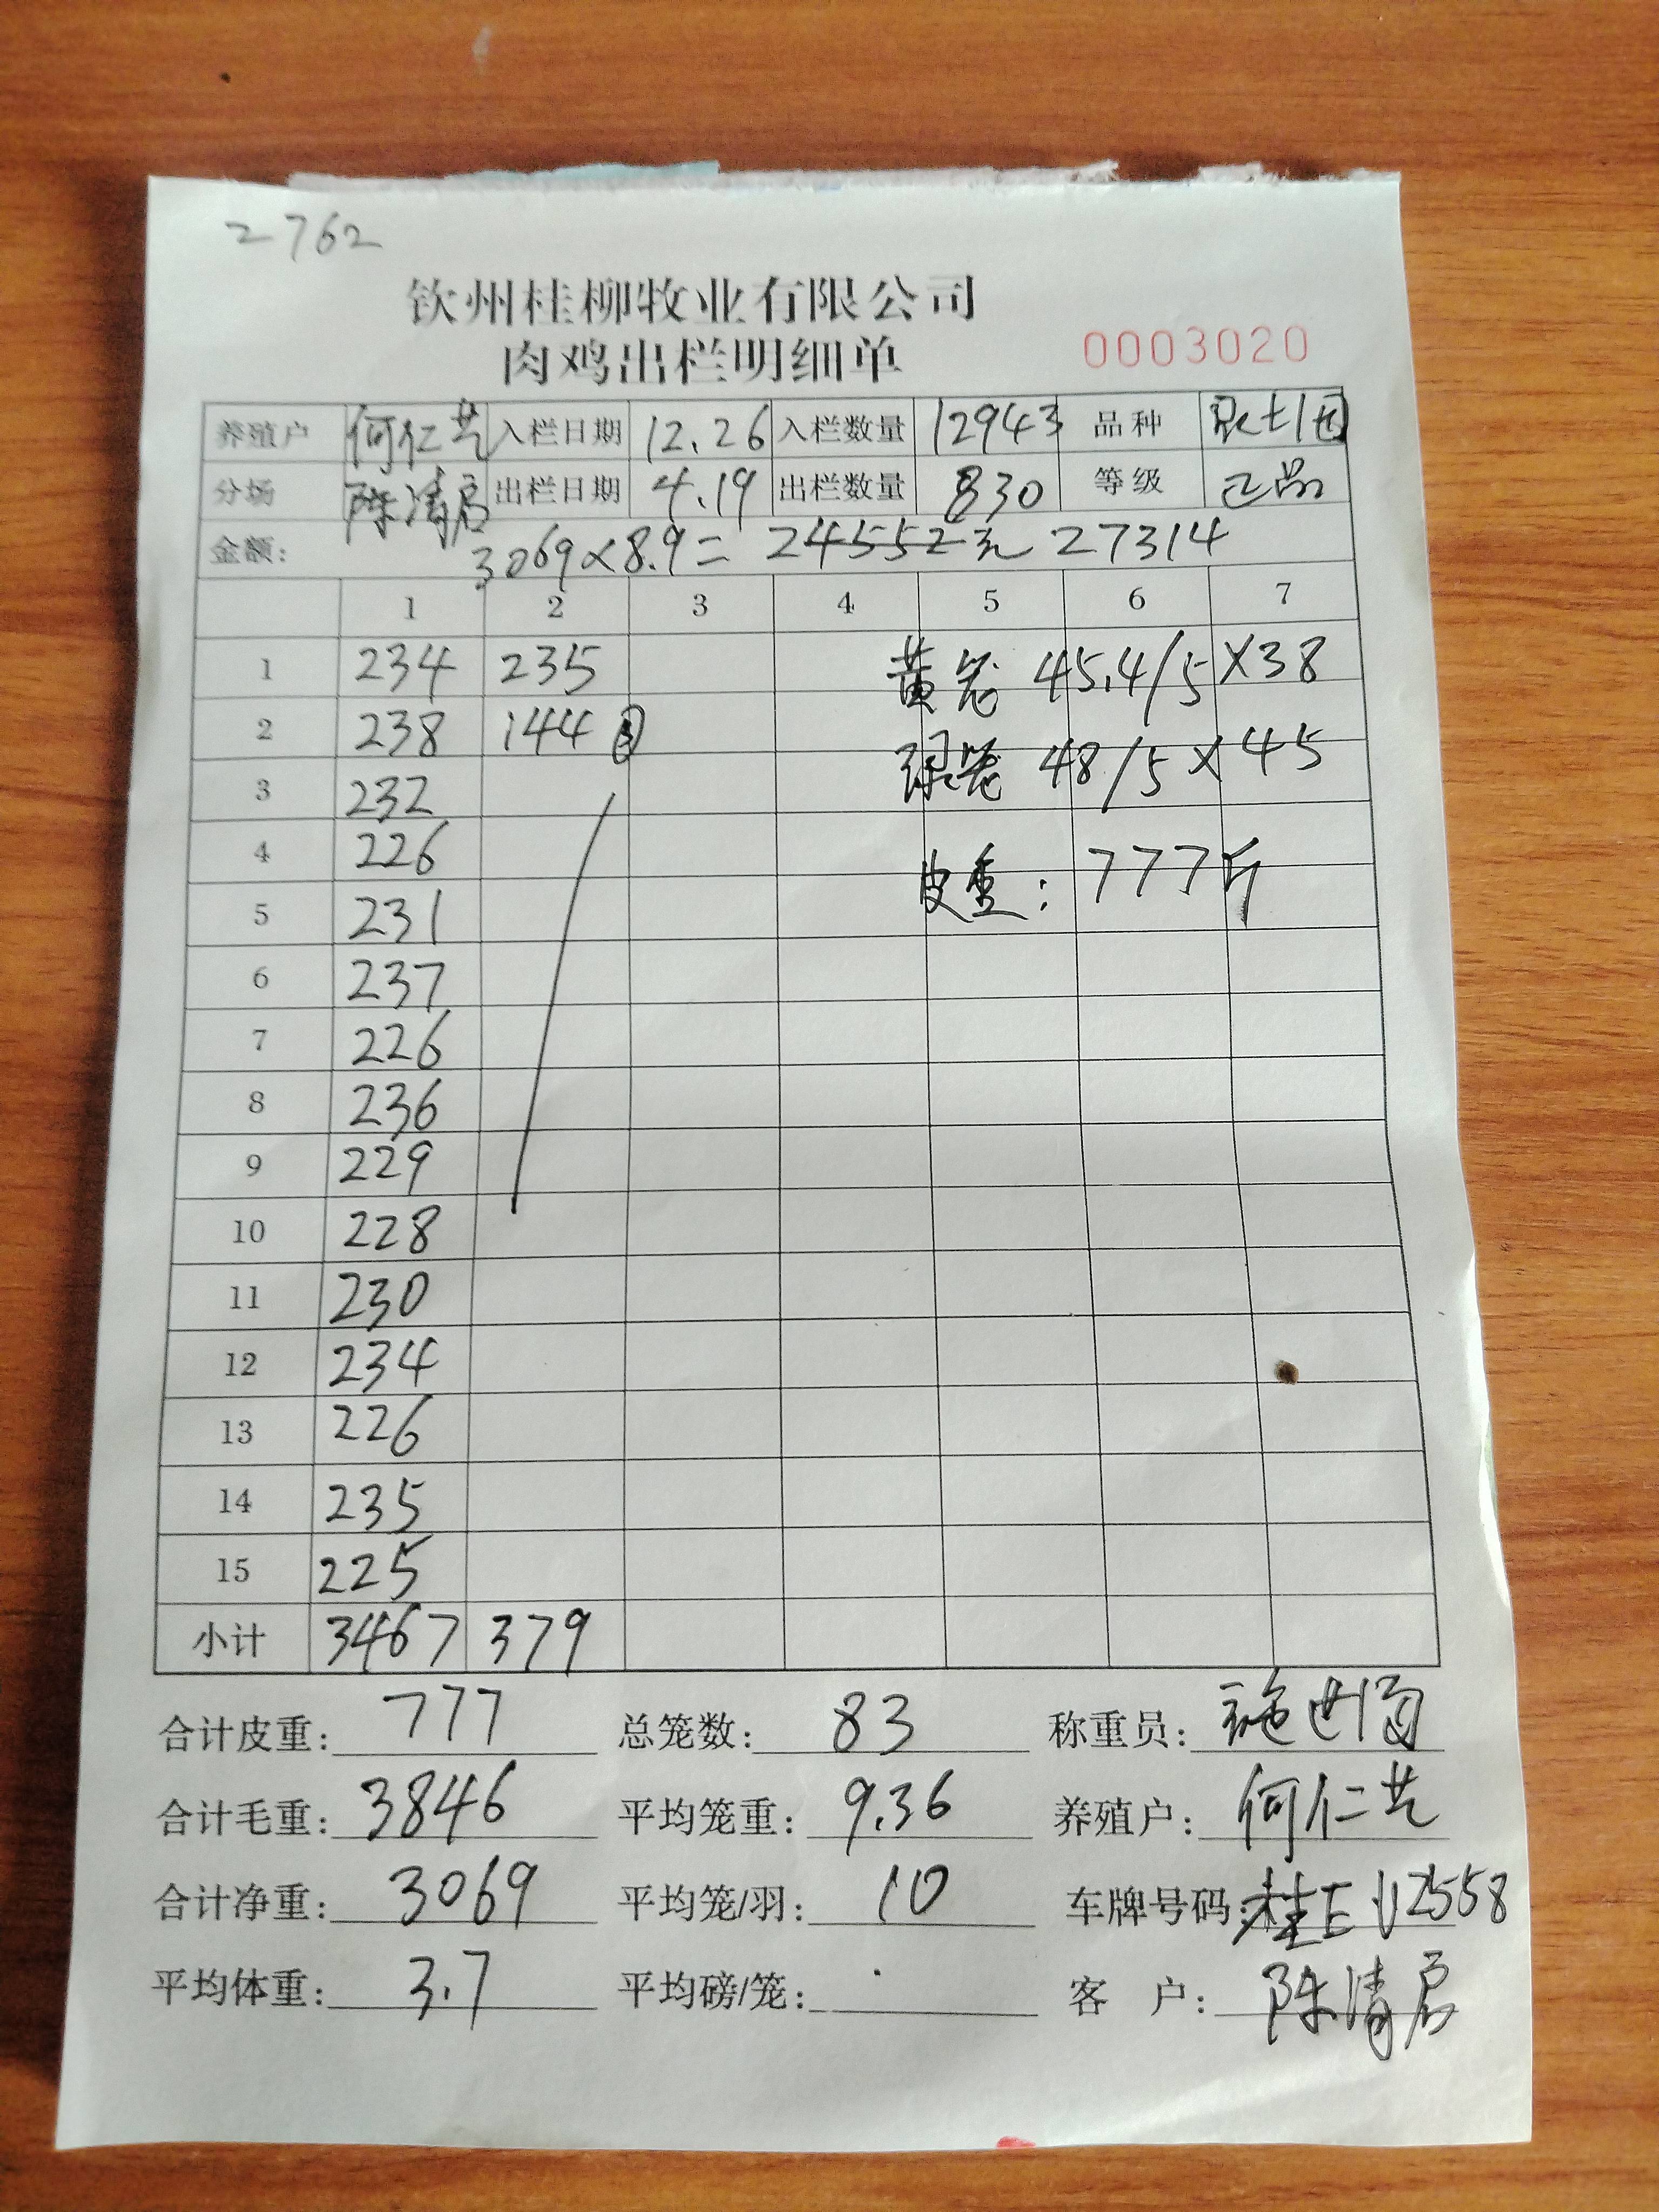 2762
钦州桂柳牧业有限公司
肉鸡出栏明细单 0003020
养殖户 何仁艺 入栏日期 12.26 入栏数量 12943 品种
分场 陈清启 出栏日期 4.19 出栏数量 830 等级 正品
金额: 3069×8.9= 24552元 27314
1 2 3 4 5 6 7
1 234 235 黄笼 45.4/5×38
2 238 144 ③ 绿笼 48/5×45
3 232
4 226 皮重: 777斤
5 231
6 237
7 226
8 236
9 229
10 228
11 230
12 234
13 226
14 235
15 225
小计 3467 379
合计皮重: 777 总笼数: 83 称重员: 施世
合计毛重: 3846 平均笼重: 9.36 养殖户: 何仁艺
合计净重: 3069 平均笼/羽: 10 车牌号码: 桂EU2558
平均体重: 3.7 平均磅/笼: 客 户: 陈清启